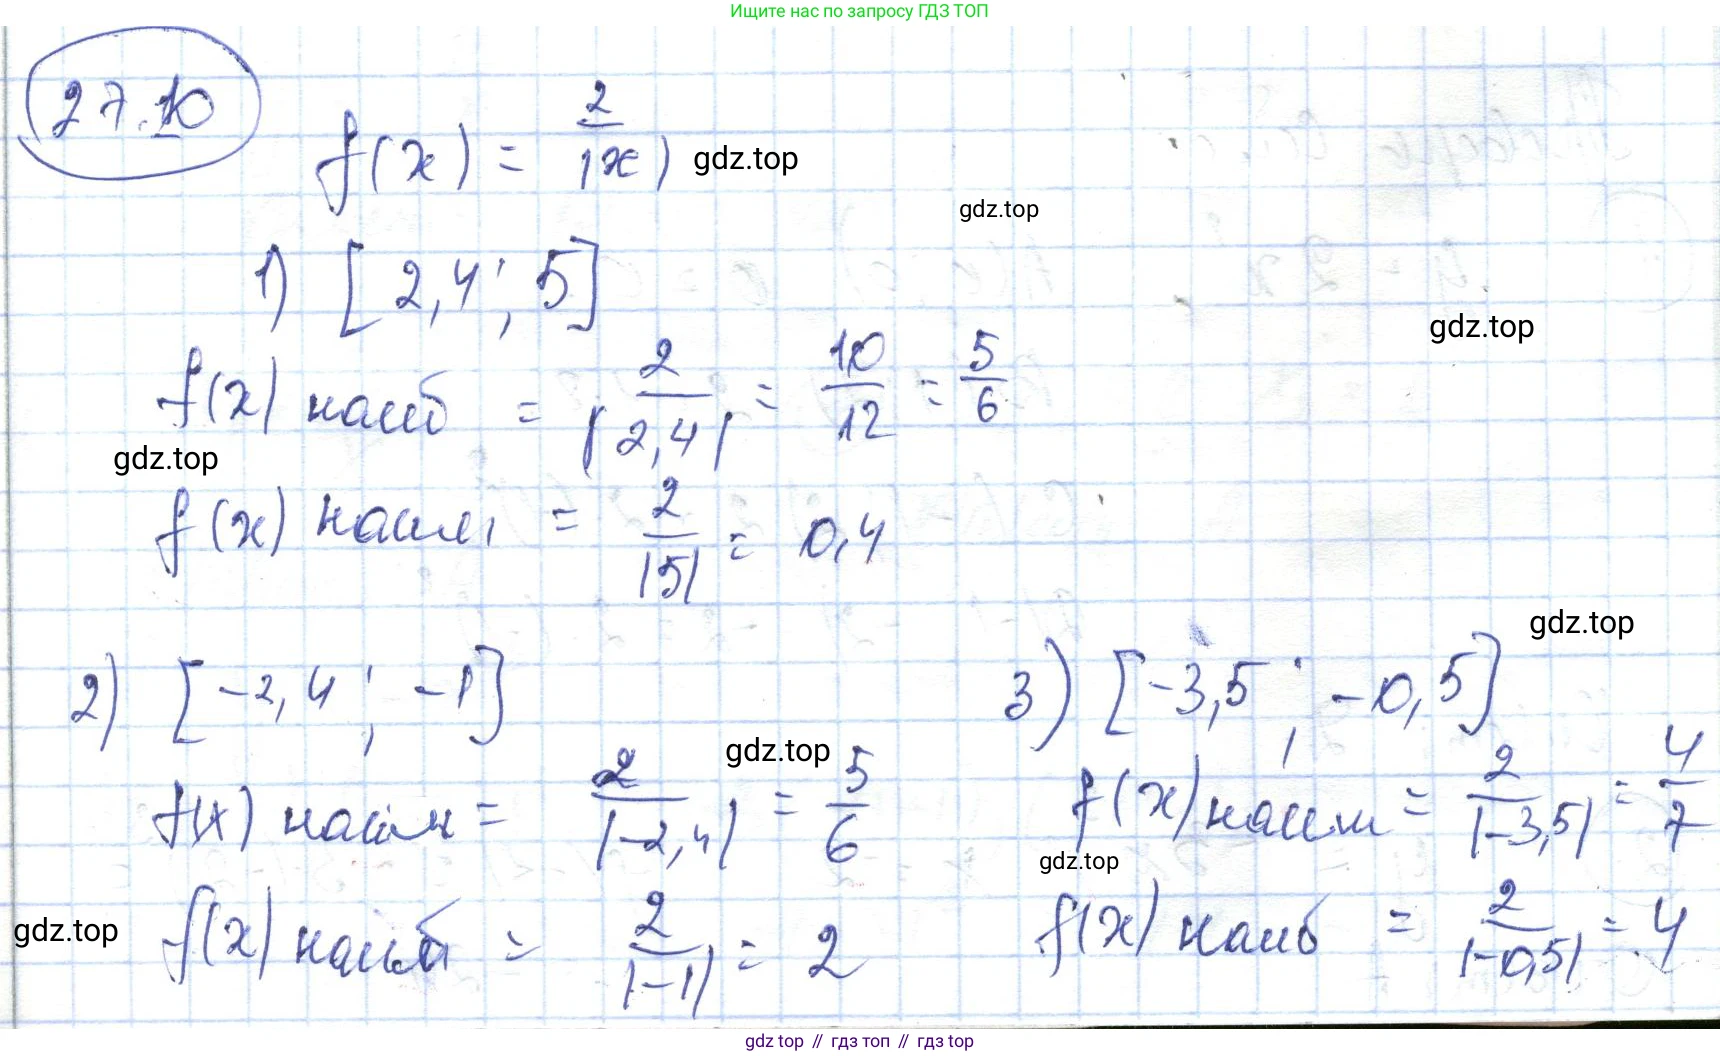 Ищите нас по запросу ГДЗ ТОП
27.10
f(x) = 2/|x|
gdz.top
gdz.top
1) [2,4; 5]
gdz.top
f(x) наиб = 2/|2,4| = 10/12 = 5/6
gdz.top
f(x) наим = 2/|5| = 0,4
gdz.top
2) [-2,4; -1]
gdz.top
f(x) наим = 2/|-2,4| = 5/6
gdz.top
f(x) наиб = 2/|-1| = 2
3) [-3,5; -0,5]
f(x) наим = 2/|-3,5| = 4/7
gdz.top
f(x) наиб = 2/|-0,5| = 4
gdz.top // гдз топ // гдз top